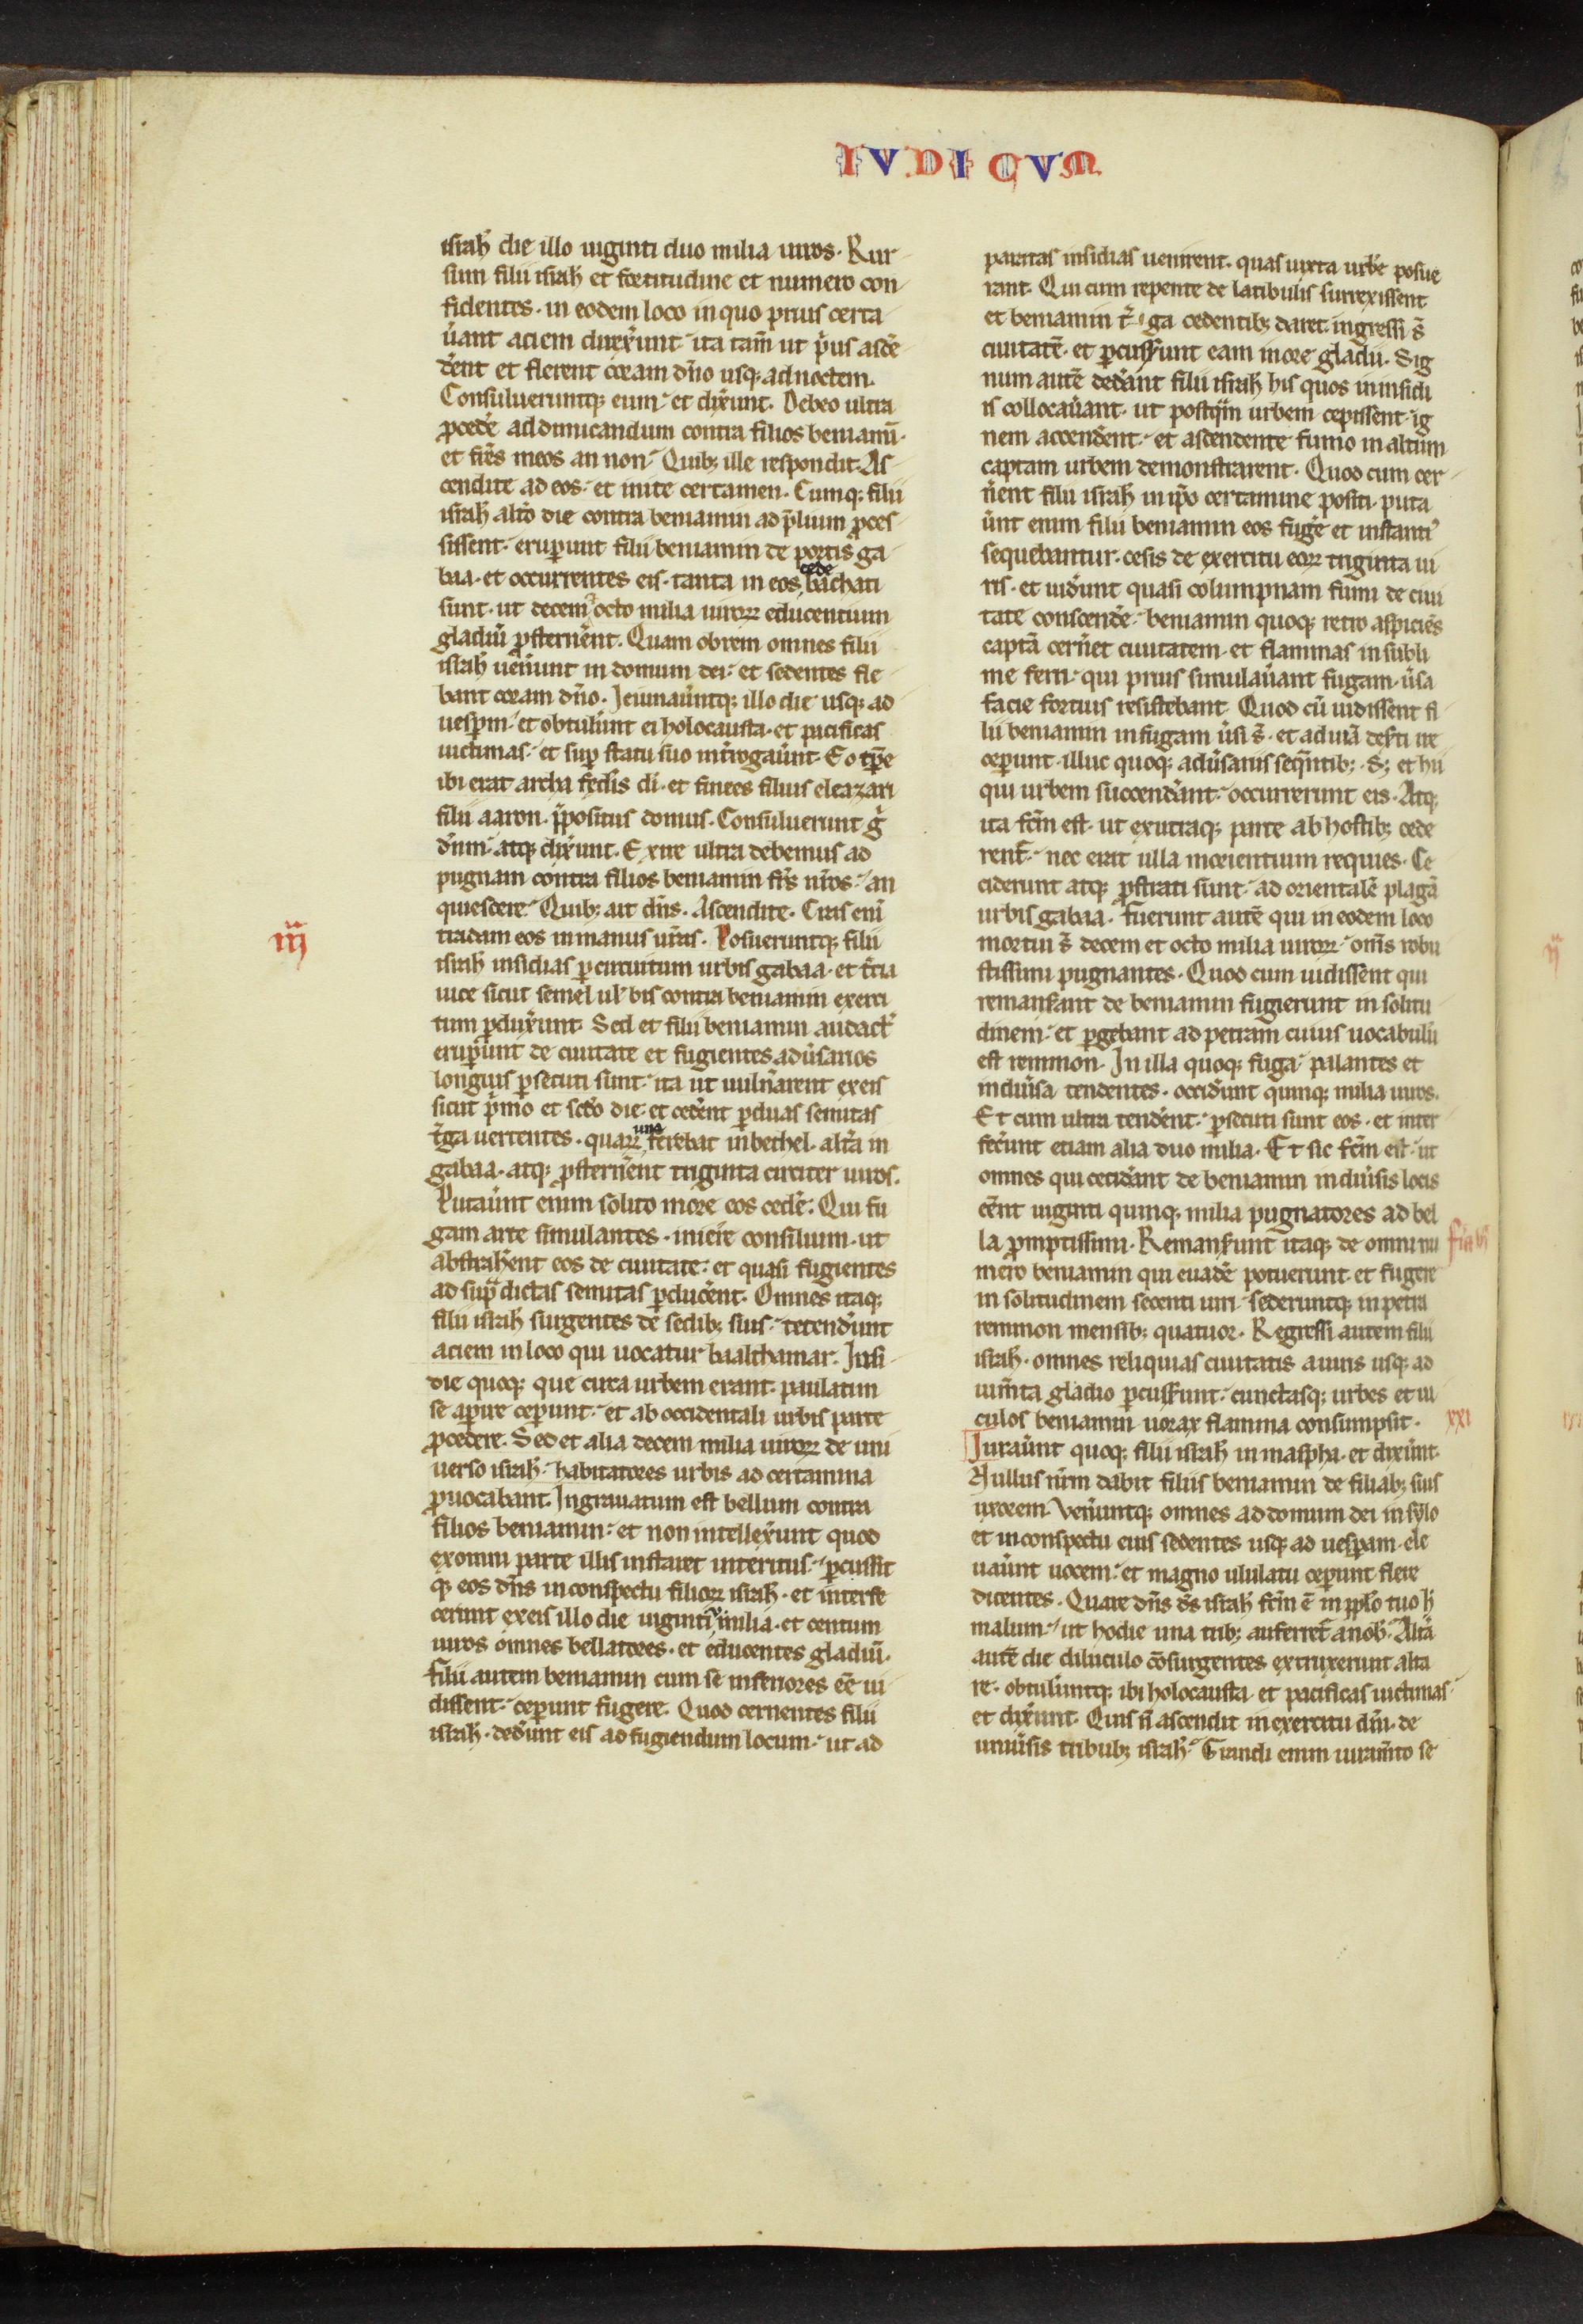 IVDICVM
israhꝉ die illo uiginti duo milia uiros. Rur-
sum filii israhꝉ et fortitudine et numero con-
fidentes. in eodem loco in quo prius certa
u̾ant aciem direx̾unt ita tam̄ ut p̾us ascē-
d̾ent et flerent coram dn̄o usq; ad noctem.
Consulueruntq; eum et dix̾unt. Debeo ultra
ꝓced̾e ad dimicandum contra filios beniamī.
et fr̄es meos an non. Quib; ille respondit. As-
cendite ad eos. et inite certamen. Cumq; filii
israhꝉ alt̾o die contra beniamin ad p̄lium ꝓces-
sissent. eruꝑunt filii beniamin de portis ga
baa. et occurrentes eis. tanta in eos cede bachati
sunt. ut decem 7 octo milia uiroꝝ educentium
gladiū ꝓstern̾ent. Quam obrem omnes filii
israhꝉ uen̾unt in domum dei. et sedentes fle-
bant coram dn̄o. Ieiunau̾untq; illo die usq; ad
uesꝑm. et obtul̾unt ei holocausta. et pacificas
uictimas. et suꝑ statu suo int̾rogau̾unt. Eo tꝑe
ibi erat archa fed̾is di̅. et finees filius eleazari
filii aaron. p̄positus domus. Consuluerunt g̾
dn̄m. atq; dix̾unt. Exire ultra debemus ad
pugnam contra filios beniamin fr̄s nr̄os. an
quiescere. Quib; ait dn̄s. Ascendite. Cras eni̅
tradam eos in manus ur̄as. Posueruntq; filii
iij
israhꝉ insidias ꝑ circuitum urbis gabaa. et t̾cia
uice sicut semel ul̾ bis contra beniamin exerci
tum ꝓdux̾unt. Sed et filii beniamin audact̾
eruꝑunt de ciuitate et fugientes adu̾sarios
longius ꝑsecuti sunt. ita ut uuln̾arent ex eis
sicut p̾mo et sc̄do die. et ced̾ent ꝑ duas semitas
t̾ga uertentes. quaꝝ una ferebat in bethel. alt̾a in
gabaa. atq; ꝓstern̾ent triginta circiter uiros.
Putau̾unt enim solito more eos ced̾e. Qui fu
gam arte simulantes. inier̾e consilium. ut
abstrah̾ent eos de ciuitate. et quasi fugientes
ad sup̾dictas semitas ꝑduc̾ent. Omnes itaq;
filii israhꝉ surgentes de sedib; suis. tetend̾unt
aciem in loco qui uocatur baalthamar. Insi-
die quoq; que circa urbem erant. paulatim
se aꝑire ceꝑunt. et ab occidentali urbis parte
ꝓcedere. Sed et alia decem milia uiroꝝ de uni
uerso israhꝉ. habitatores urbis ad certamina
ꝓuocabant. Ingrauatum est bellum contra
filios beniamin. et non intellex̾unt quod
ex omni parte illis instaret interitus. ꝑcussit
q; eos dn̄s in conspectu filioꝝ israhꝉ. et interfe
cerunt ex eis illo die uiginti v milia. et centum
uiros omnes bellatores. et educentes gladiū.
Filii autem beniamin cum se inferiores ee̅ ui
dissent. ceꝑunt fugere. Quod cernentes filii
israhꝉ. ded̾unt eis ad fugiendum locum. ut ad
paratas insidias uenirent. quas iuxta urbē posue
rant. Qui cum repente de latibulis surrexissent
et beniamin t̾ga cedentib; daret. ingressi s̄
ciuitatē. et ꝑcuss̾unt eam in ore gladii. Sig
num autē ded̾ant filii israhꝉ his quos in insidi
is collocau̾ant. ut postq̄m urbem cepissent. ig
nem accend̾ent. et ascendente fumo in altum
captam urbem demonstrarent. Quod cum cer-
n̾ent filii israhꝉ in ip̄o certamine positi. puta
u̾unt enim filii beniamin eos fug̾e et instanti᷒
sequebantur. cesis de exercitu eoꝝ triginta ui
ris. et uid̾unt quasi columpnam fumi de ciui
tate conscend̾e. beniamin quoq; retro aspiciēs
captā cern̾et ciuitatem. et flammas in subli
me ferri. qui prius simulau̾ant fugam. u̾sa
facie fortius resistebant. Quod cū uidissent fi
lii beniamin in fugam u̾si s̄. et ad uiā des̾ti ire
ceꝑunt. illuc quoq; adu̾sariis seq̄ntib;. S; et hii
qui urbem succend̾ant. occurrerunt eis. Atq;
ita fc̄m est. ut ex utraq; parte ab hostib; cede
rent̾. nec erat ulla morientium requies. Ce
ciderunt atq; ꝓstrati sunt. ad orientalē plagā
urbis gabaa. Fuerunt autē qui in eodem loco
mortui s̄ decem et octo milia uiroꝝ. om̄s robu
stissimi pugnantes. Quod cum uidissent qui
remans̾ant de beniamin fugierunt in solitu
dinem. et ꝑgebant ad petram cuius uocabulū
est remmon. In illa quoq; fuga. palantes et
in diu̾sa tendentes. occid̾unt quinq; milia uiros.
Et cum ultra tend̾ent. ꝑsecuti sunt eos. et inter
fec̾unt etiam alia duo milia. Et sic fc̄m est. ut
omnes qui cecid̾ant de beniamin in diu̾sis locis
eēnt uiginti quinq; milia pugnatores ad bel
la ꝓmptissimi. Remans̾unt itaq; de omni nu
mero beniamin qui euad̾e potuerunt et fugere
in solitudinem secenti uiri. sederuntq; in petra
remmon mensib; quatuor. Regressi autem filii
israhꝉ. omnes reliquias ciuitatis a uiris usq; ad
ium̄ta gladio ꝑcuss̾unt. cunctasq; urbes et ui
culos beniamin uorax flamma consumpsit.
xxi
Iurau̾unt quoq; filii israhꝉ in maspha. et dix̾unt.
Nullus nr̄m dabit filiis beniamin de filiab; suis
uxorem. Ven̾untq; omnes ad domum dei in sylo
et in conspectu eius sedentes usq; ad uesꝑam. ele
uau̾unt uocem. et magno ululatu ceꝑunt flere
dicentes. Quare dn̄s ds̄ israhꝉ fc̄m ē in ppl̄o tuo h̾
malum. ut hodie una trib; auferret̾ a nob̾. Alt̾a
autē die diluculo cōsurgentes extruxerunt alta
re. obtul̾untq; ibi holocausta. et pacificas uictimas.
et dix̾unt. Quis n̄ ascendit in exercitu dn̄i. de
uniu̾sis tribub; israhꝉ. Grandi enim iuram̄to se